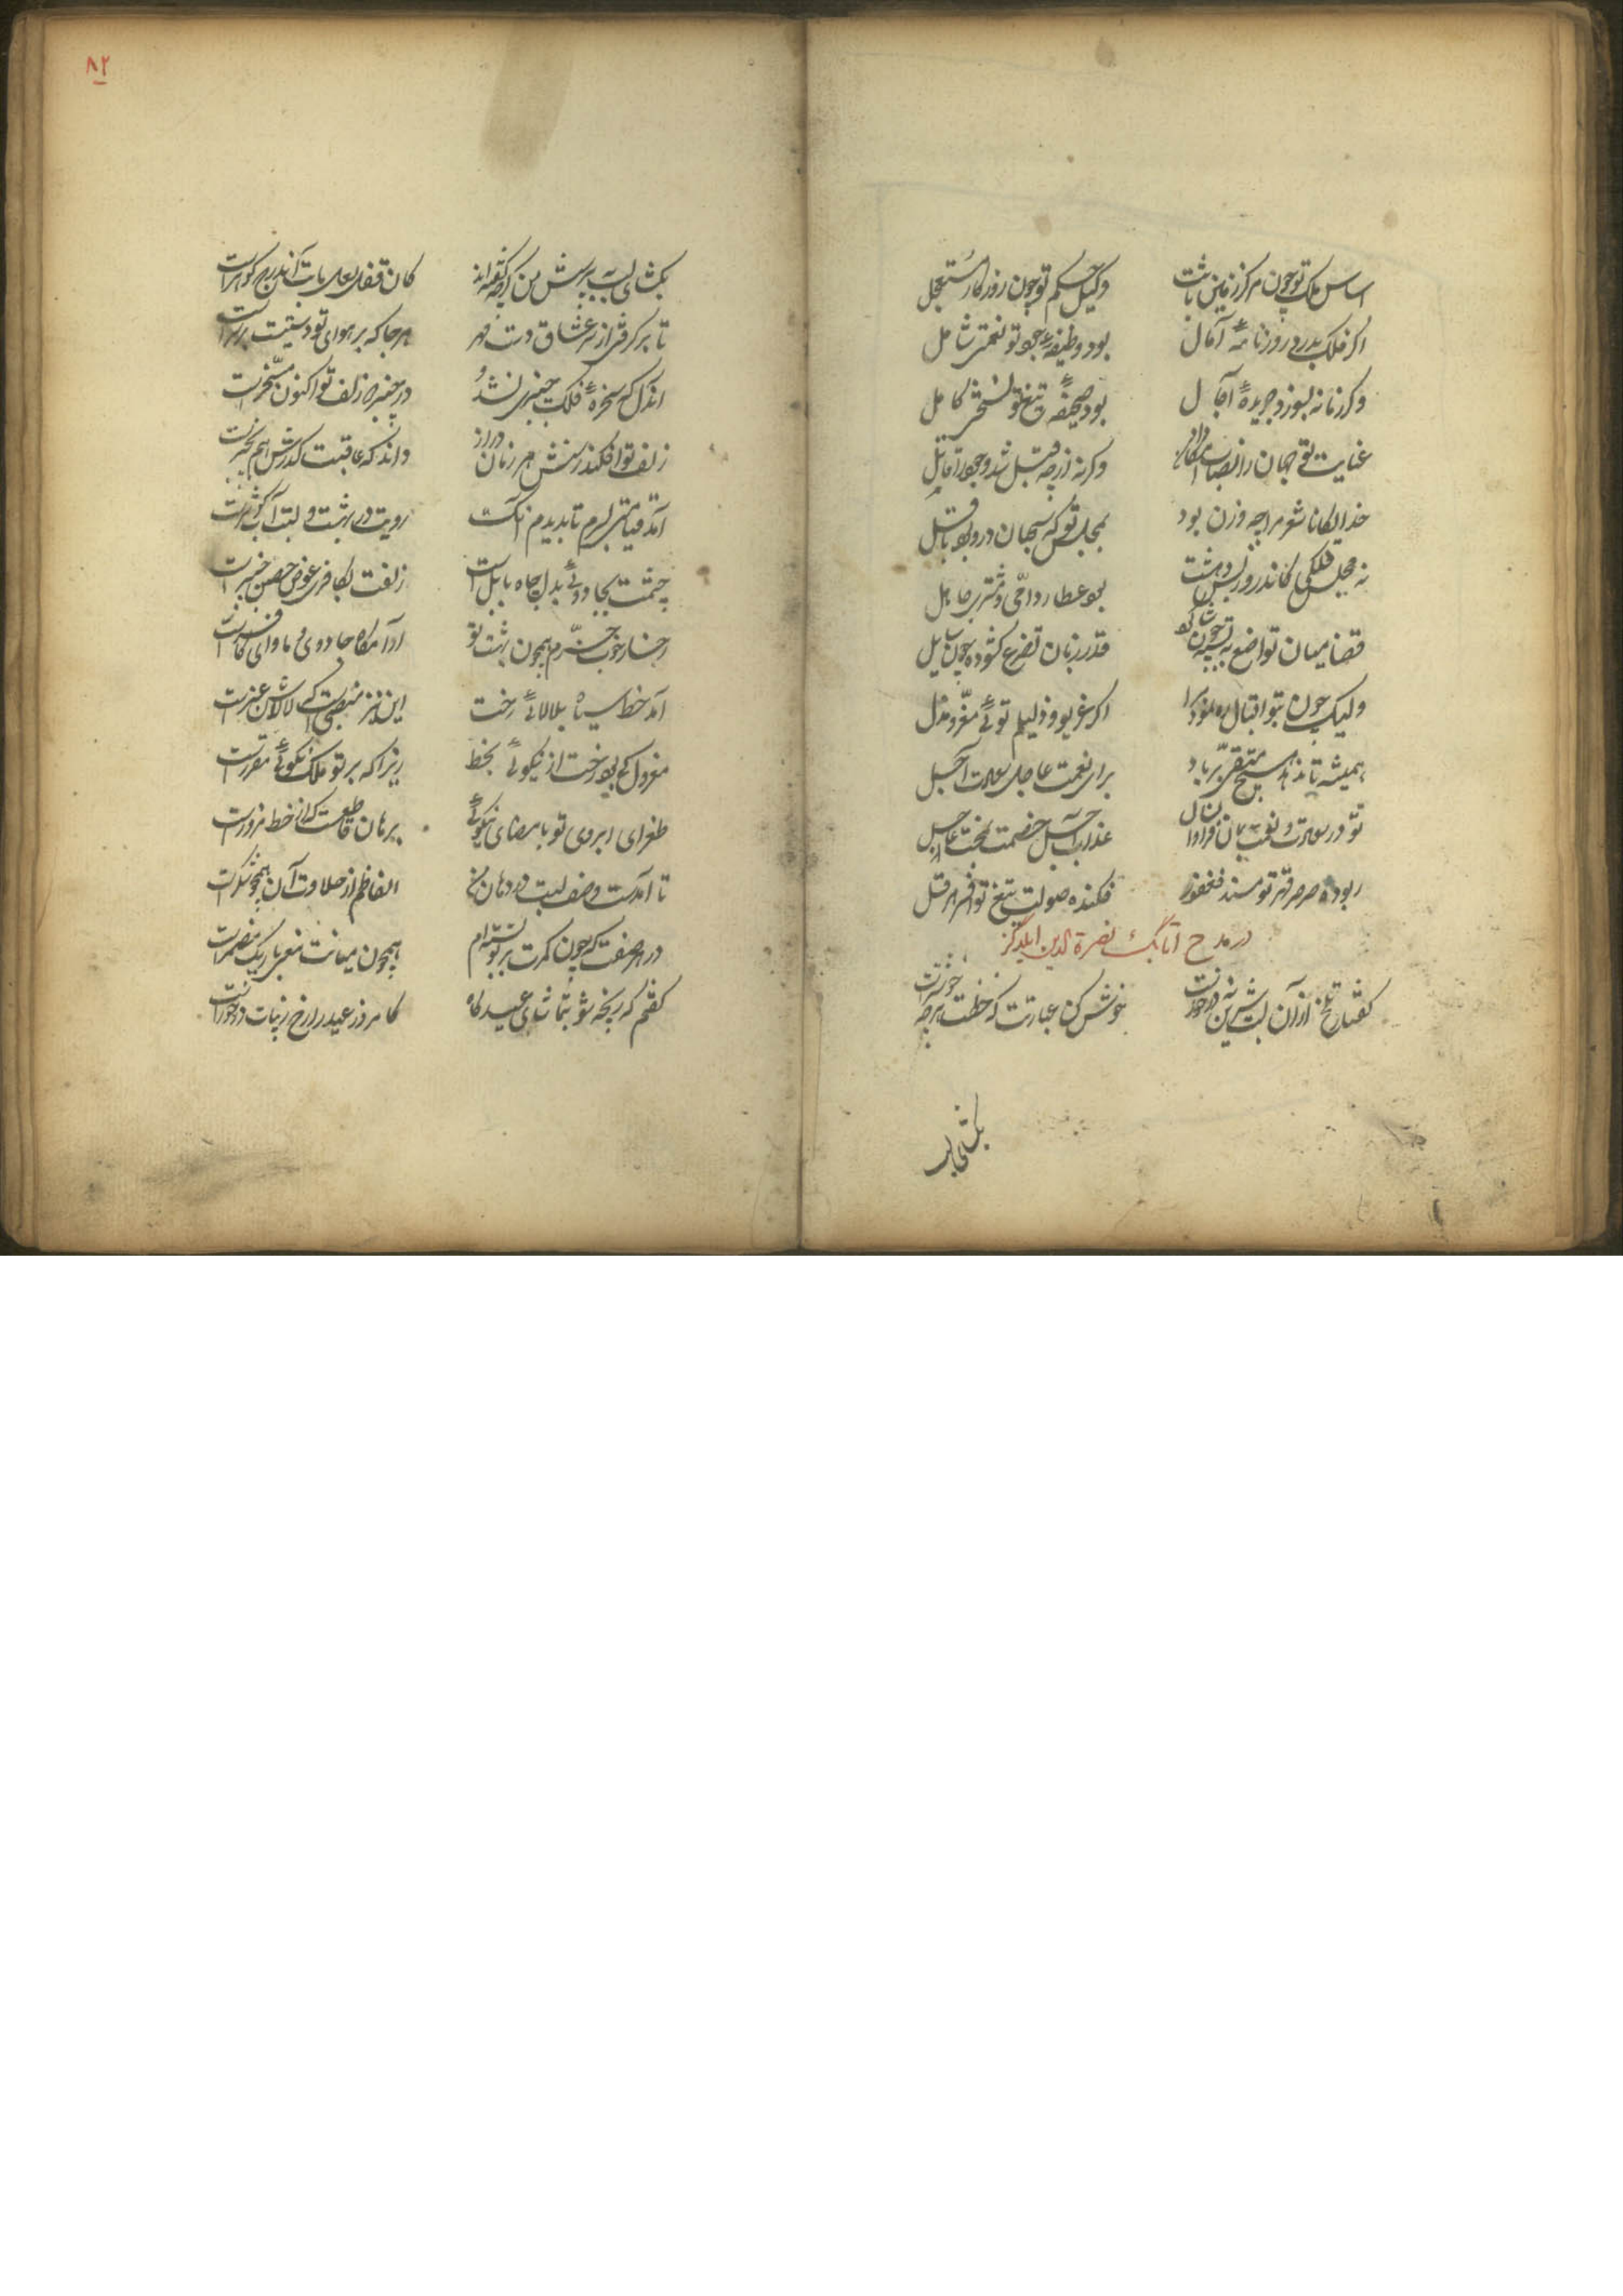 اساس ملک تو چون مرکز زمین ثابت وکیل حکم تو چون روزگار مستعجل
اگر فلک بدرد روزنامهٔ آمال بود وظیفهٔ جود تو نعمتی شامل
وگر زمانه بسوزد جریدهٔ آجال بود صحیفهٔ تیغ تو نسختی کامل
عنایت تو جهان را وگرنه از چه قبل شد وجود را قابل
خدایگانا شعر مرا چه وزن بود بمجلس تو که سحبان درو بود باقل
نه مجلس فلکی کاندرو ز بس دهشت بود عطارد امّی و مشتری جاهل
قضا میان تواضع ببسته چون قدر زبان تضرع گشوده چون سایل
ولیک چون بتو اقبال ره نمود مرا اگر غریب و ذلیلم توئی معز و مذل
همیشه تا ندهد هیچ متقی بر باد برای نعمت عاجل سعادت آجل
تو در سعادت و نعمت بمان فراوان سال عذاب آجل خصمت بمحنت عاجل
ربوده صرصر قهر تو مسند فغفور فکنده صولت تیغ تو افسر هرقل
در مدح اتابک نصرة الدین ایلدگز
گفتار تلخ از آن لب شیرین نه در خورست خوش کن عبارتت که خطت هرچه خوشترست
بگشای لب
۸۲
بگشای لب بپرسش من گرچه گفته‌اند کان قفل لعل بابت آن درج گوهرست
تا برگرفتی از سر عشاق دست مهر هرجا که بر هوای تو دستیست بر سرست
آن دل که سخرهٔ فلک چنبری نشد در چنبر دو زلف تو اکنون مسخرست
زلف تو افکند رسنش هر زمان دراز داند که عاقبت گذرش هم بچنبرست
آمد قیامتی بسرم تا بدیدم آنک رویت در بهشت و لبت آب کوثرست
چشمت بجادوئی بدل چاه بابل است زلفت بکافری عوض حصن خیبرست
رخسار خوب خرم همچون بهشت تو آرامگاه جادوی و ماوای کافرست
آمد خط سیاه بلالائی رخت این نیز منصبیست که لالاش عنبرست
معزول کی بود رخت از نیکوئی بخط زیرا که بر تو ملک نکوئی مقررست
طغرای ابروی تو بامضای نیکوئی برهان قاطعست که آن خط مزورست
تا آمدست وصف لبت در دهان من الفاظم از حلاوت آن همچو شکرست
در هر صفت که چون کمرت بر تو بسته‌ام همچون میانت معنی باریک مضمرست
گفتم که رنجه شو بتماشای عیدگاه کامروز عید را رخ زیبات در خورست